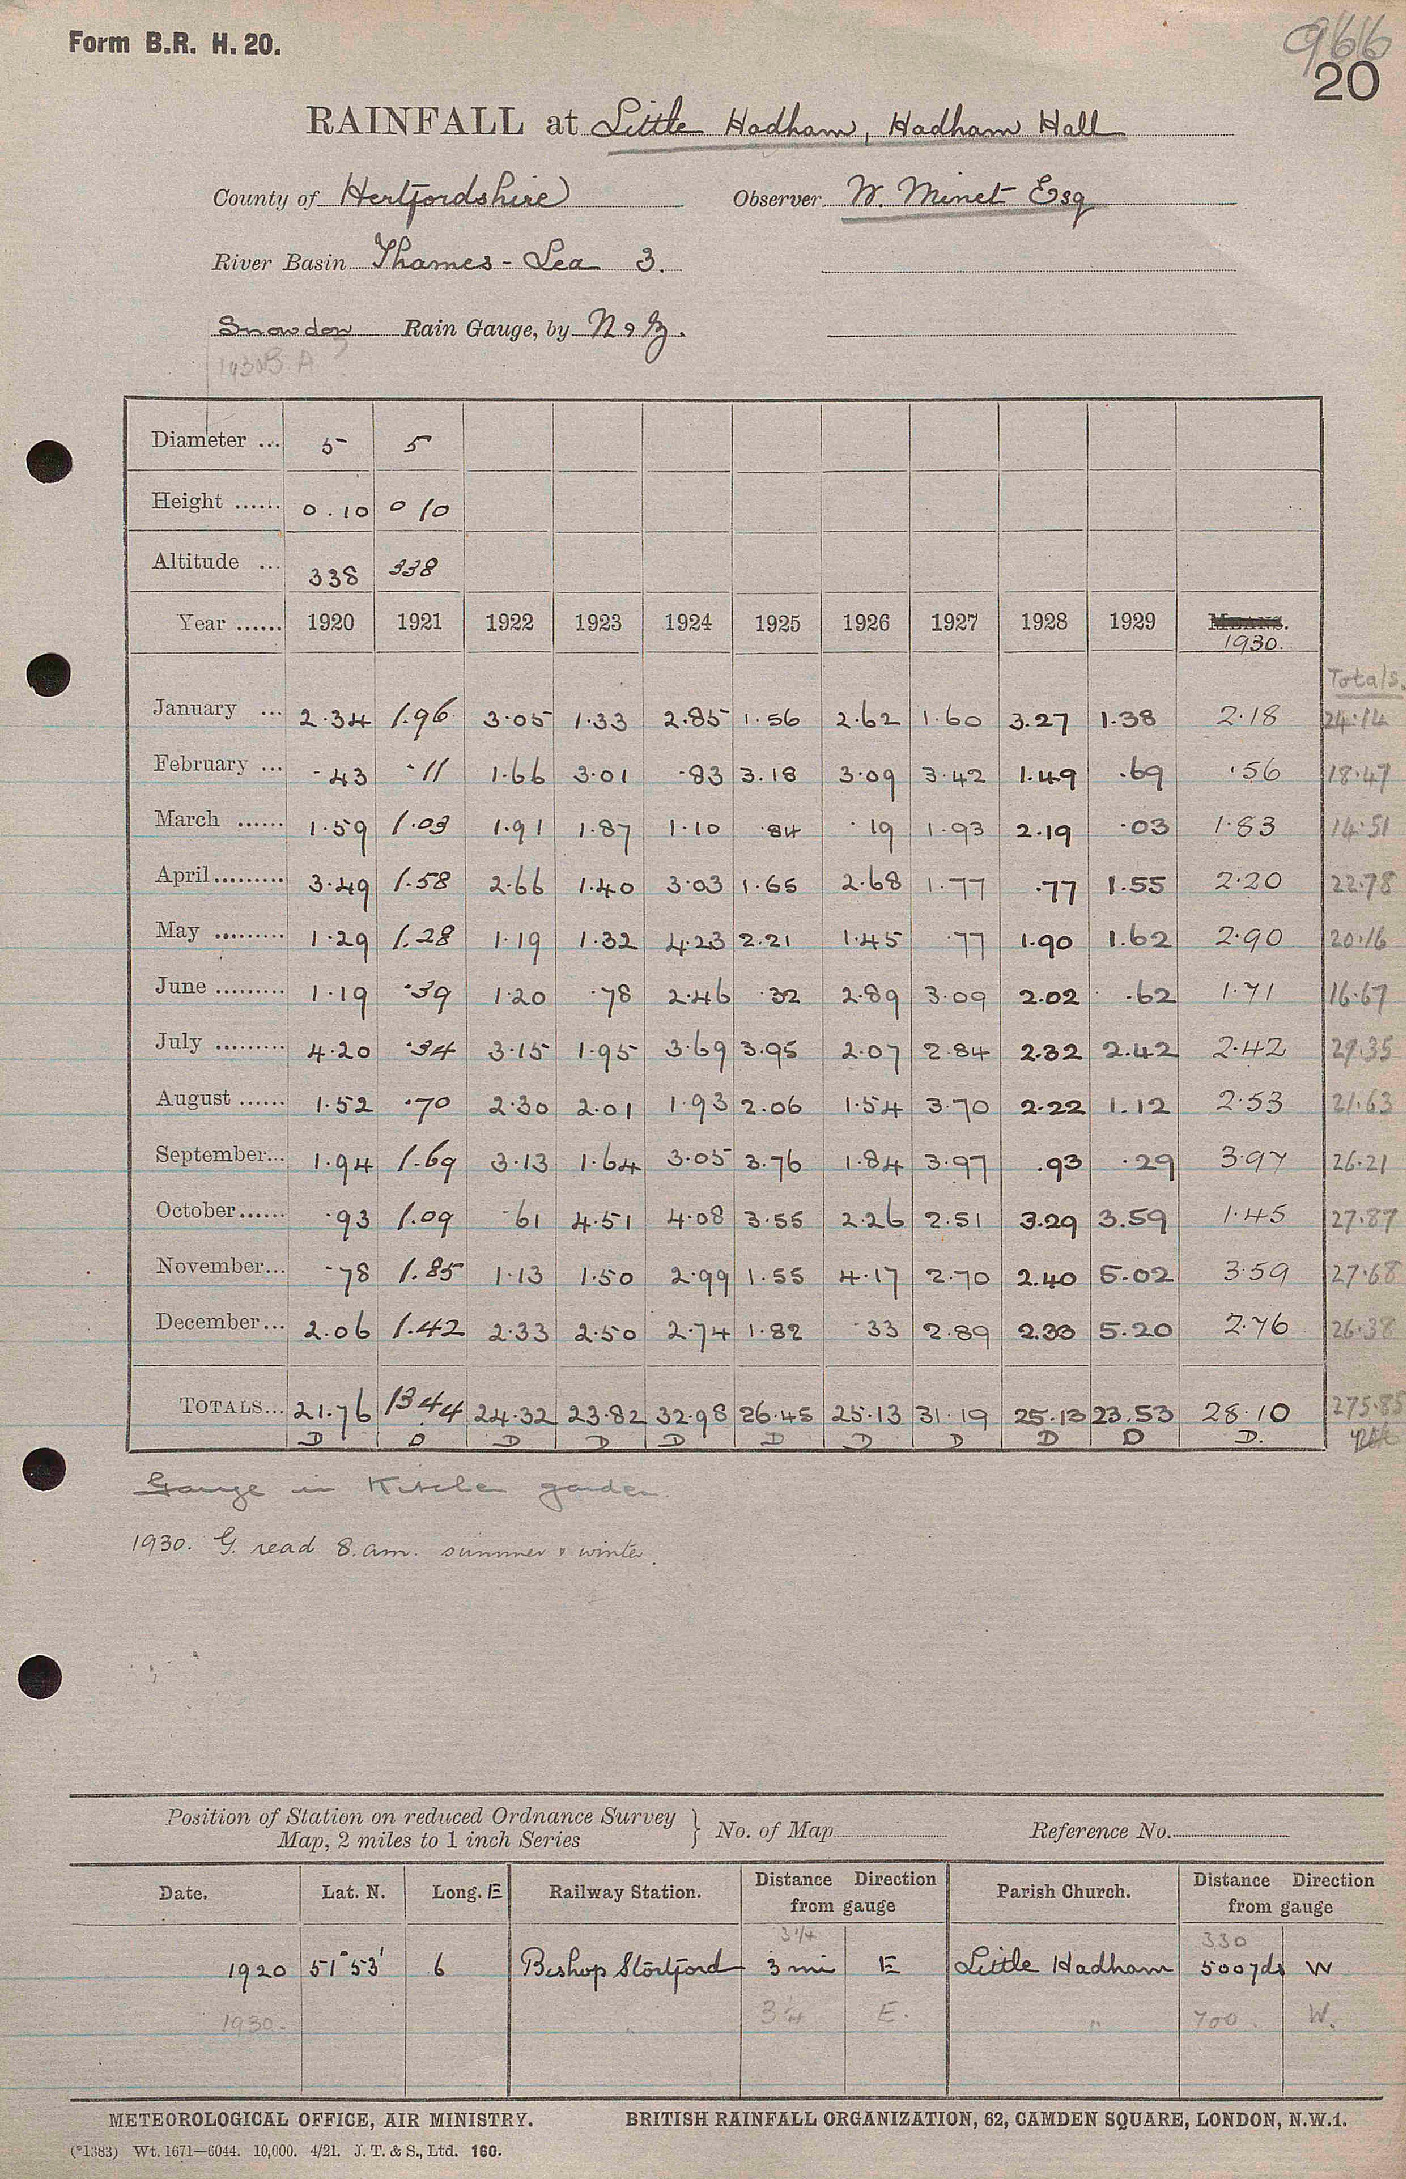 Form B.R. H. 20.
966
20
RAINFALL at Little Hadham, Hadham Hall
County of Hertfordshire Observer W. Minet Esq
River Basin Thames - Lea 3.
Snowdon Rain Gauge, by N & Z.
Diameter ... 5 5
Height ...... 0.10 0 10
Altitude ... 338 338
Year ...... 1920 1921 1922 1923 1924 1925 1926 1927 1928 1929 MEANS. 1930.
Totals.
January ... 2.34 1.96 3.05 1.33 2.85 1.56 2.62 1.60 3.27 1.38 2.18 24.14
February ... .43 .11 1.66 3.01 .83 3.18 3.09 3.42 1.49 .69 .56 18.47
March ...... 1.59 1.03 1.91 1.87 1.10 .84 .19 1.93 2.19 .03 1.83 14.51
April ......... 3.49 1.58 2.66 1.40 3.03 1.65 2.68 1.77 .77 1.55 2.20 22.78
May ......... 1.29 1.28 1.19 1.32 4.23 2.21 1.45 .77 1.90 1.62 2.90 20.16
June ......... 1.19 .39 1.20 .78 2.46 .32 2.89 3.09 2.02 .62 1.71 16.67
July ......... 4.20 .34 3.15 1.95 3.69 3.95 2.07 2.84 2.32 2.42 2.42 29.35
August ...... 1.52 .70 2.30 2.01 1.93 2.06 1.54 3.70 2.22 1.12 2.53 21.63
September... 1.94 1.69 3.13 1.64 3.05 3.76 1.84 3.97 .93 .29 3.97 26.21
October...... .93 1.09 .61 4.51 4.08 3.55 2.26 2.51 3.29 3.59 1.45 27.87
November... .78 1.85 1.13 1.50 2.99 1.55 4.17 2.70 2.40 5.02 3.59 27.68
December... 2.06 1.42 2.33 2.50 2.74 1.82 .33 2.89 2.33 5.20 2.76 26.38
TOTALS... 21.76 13 44 24.32 23.82 32.98 26.45 25.13 31.19 25.13 23.53 28.10 275.85
D D D D D D D D D D D.
Gauge in Kitchen garden.
1930. G. read 8. am. summer & winter.
Position of Station on reduced Ordnance Survey
Map, 2 miles to 1 inch Series } No. of Map Reference No.
Date. Lat. N. Long. E Railway Station. Distance Direction from gauge Parish Church. Distance Direction from gauge
3 1/4 330
1920 51° 53' 6 Bishop Stortford 3 mi E Little Hadham 500 yds W
1930. " 3 1/4 E. " 700. W.
METEOROLOGICAL OFFICE, AIR MINISTRY. BRITISH RAINFALL ORGANIZATION, 62, CAMDEN SQUARE, LONDON, N.W.1.
(*1383) Wt. 1671—6044. 10,000. 4/21. J. T. & S., Ltd. 160.